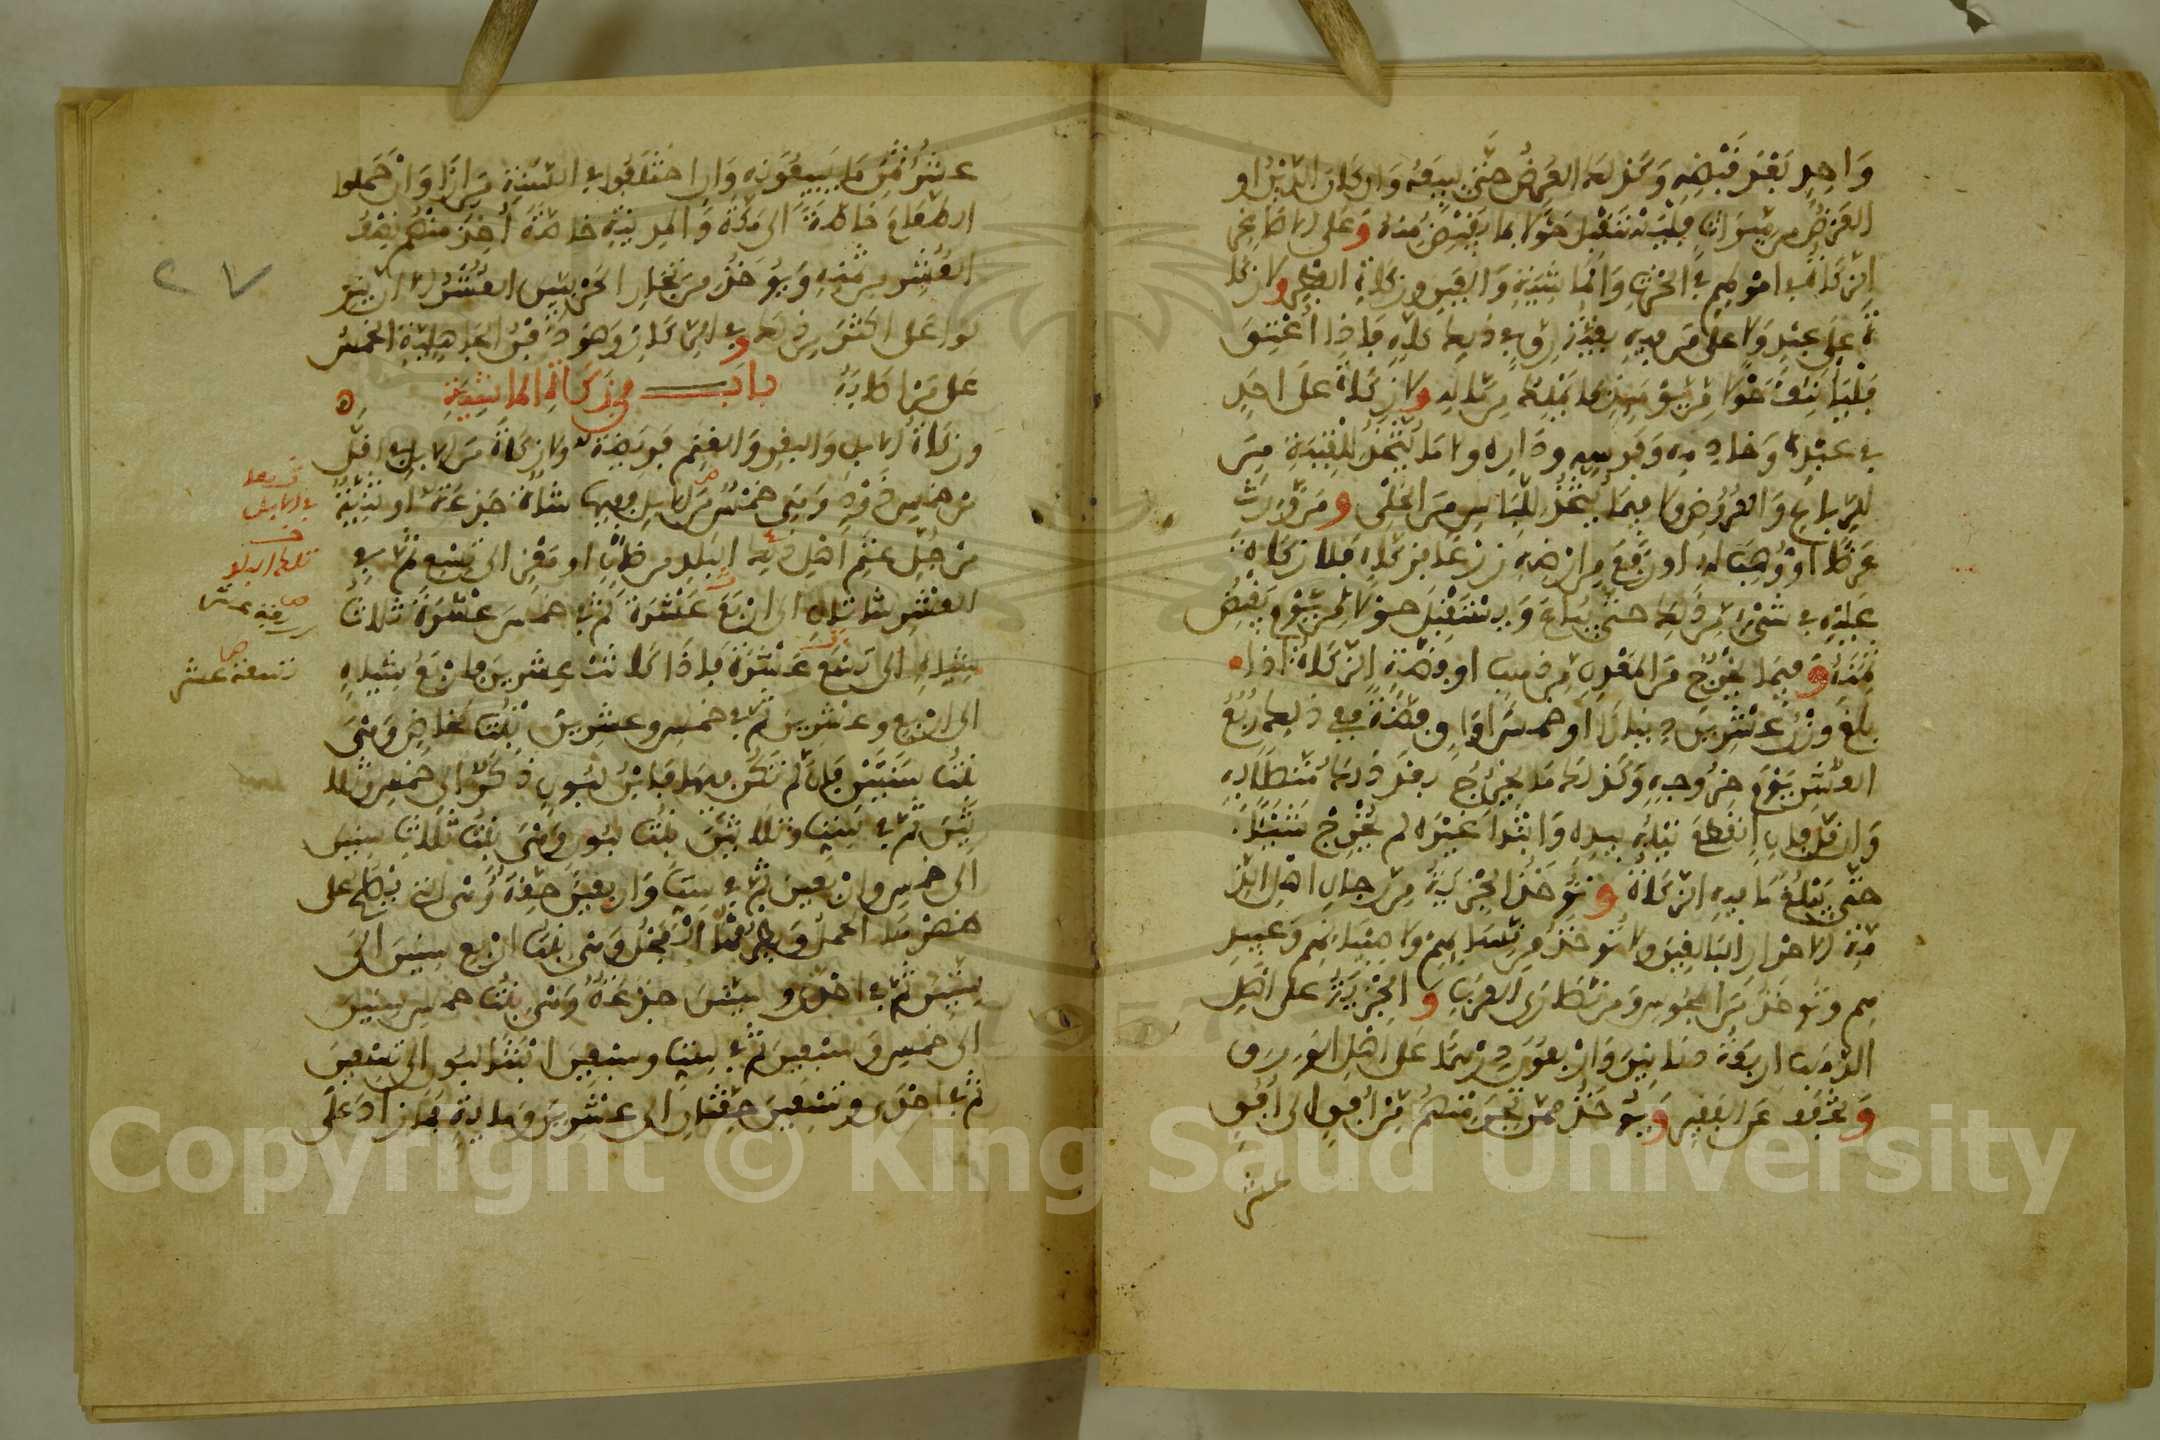 وَاحِدٍ بَعْدَ قَبْضِهِ وَكَذلكَ العَرْضُ حَتَّى يَبِيعَهُ وَان كَانَ الدَّيْنُ او
العَرْضُ مِن مِيرَاثٍ فَلْيَسْتَقْبِل حَوْلاً بما يَقْبِضُ مِنْهُ وَعَلى الاصاغِر
الزَّكَاةُ في امْوَالِهِم في الحَرْثِ وَالمَاشِيَةِ وَالعَينِ وزكاةِ الفِطْرِ ولا زكا
ةَ عَلى عَبْدٍ وَلا عَلى مَن فيهِ بَقِيَّةُ رِقٍّ في ذلِكَ كلِّهِ فَاِذَا أُعْتِقَ
فَلْيَأتَنِف حَوْلاً مِن يَوْمَئِذٍ بما يَمْلِكُ مِن مَّالِهِ ولا زكاةَ عَلى احَدٍ
في عَبْدِهِ وَخادِمِهِ وَفَرَسِهِ ودَارِهِ ولا مَا يُتَّخَذُ لِلْقِنْيَةِ مِنَ
الرِّبَاعِ وَالعُرُوضِ ولا فيمَا يُتَّخَذُ لِلّبَاسِ مِنَ الحُلِيِّ ومَن وَّرِثَ
عَرْضًا أوْ وُهِبَ لهُ او رَفَعَ مِن ارْضِهِ زَرْعًا فزكاهُ فَلا زكاةَ
عَلَيْهِ في شَيْءٍ مِن ذلِكَ حَتَّى يُبَاعَ وَيَسْتَقْبِلَ حَوْلاً مِن يَّوْم يَقْبِضُ
ثَمَنَهُ وَفيمَا يَخْرُجُ مِنَ المَعْدِنِ مِن ذهبٍ او فِضَّةٍ الزَّكاةُ اذا
بَلَغَ وَزْنَ عِشْرِينَ دِينَارًا أو خمسَ اوَاقٍ فِضَّةً فَفي ذلِكَ رُبُعُ
العُشُرِ يَوْمَ خُرُوجِهِ وَكَذلكَ مَا يَخْرُجُ بعْدَ ذلكَ مُتَّصِلاً بِهِ
وَان قلَّ فإن انقَطَعَ نَيْلُهُ بيدِهِ وَابْتَدَأ غَيْرَهُ لم يُخْرِجْ شَيْئًا
حَتَّى يَبْلُغَ مَا فيهِ الزَّكاةُ وَتُؤخَذُ الجِزْيَةُ مِن رِّجالِ اهْلِ الذِّ
مَّةِ الاحْرارِ البَالِغِينَ ولا تُؤخَذُ مِن نِّسَائِهِم ولا صِبْيَانِهِم وَعَبِيدِ
هِم وتُؤخَذُ مِنَ المَجُوسِ ومِن نَّصَارَى العَرَبِ وَالجِزْيَةُ على اهْلِ
الذَّهَبِ ارْبَعَةُ دنَانِيرَ وَارْبَعُونَ دِرْهَمًا عَلى اهْلِ الوَرِقِ
وَيُخَفَّفُ عَنِ الفَقِيرِ وَيُؤخَذُ مِمَّن تَجَرَ مِنْهُم مِّنْ أُفُقٍ الى أُفُقٍ
عشر
عُشُرُ ثَمَنِ مَا يَبِيعُونَهُ وَاِن اخْتَلَفُوا في السَّنَةِ مِرَارًا وَاِنْ حَمَلُوا
الطعَامَ خاصَّةً الى مَكَّةَ وَالمَدِينَةِ خاصَّةً أُخِذَ مِنْهُم نِصْفُ
العُشُرِ مِن ثَمَنِهِ وَيُؤخَذُ مِن تُجّارِ الحَرْبِيّينَ العُشُرُ إلا ان يَنْزِ
لُوا عَلى اكْثَرَ مِن ذلكَ وفي الرِّكَازِ وَهُوَ دِفْنُ الجَاهِلِيَّةِ الخُمُسُ
عَلى مَنْ اصَابَهُ بَاب في زَكاةِ الماشِيَةِ
وزكاةُ الابِلِ وَالبَقَرِ وَالغَنَمِ فَرِيضَةٌ ولا زكاةَ مِنَ الابِلِ في اقَلَّ
مِنْ خمسِ ذَوْدٍ وَهِيَ خَمْسٌ مِّنَ الابِلِ ففِيهَا شاةٌ جَذَعَةٌ او ثَنِيَّةٌ
مِنْ جُلِّ غَنَمِ أهْلِ ذلِكَ البَلَدِ مِن ضَأنٍ او مَعْزٍ الى تِسْعٍ ثُمَّ في
العَشْرِ شاتَانِ الى ارْبَعَ عَشْرَةَ ثُمَّ في خمسَ عَشْرَةَ ثَلاثُ
شِيَاهٍ الى تِسْعَ عَشْرَةَ فَاِذَا كَانَت عِشْرِينَ فَارْبَعُ شِيَاهٍ
الى ارْبَعٍ وعِشْرِينَ ثُمَّ في خمسٍ وعشْرِين بِنْتُ مَخَاضٍ وَهْيَ
بِنْتُ سَنَتَيْنِ فَاِن لَّم تَكُن فِيهَا فَابْنُ لَبُونٍ ذَكَرٌ الى خمسٍ وثَلا
ثِينَ ثُمَّ في سِتٍّ وثلاثِينَ بِنْتُ لَبُونٍ وَهْيَ بِنْتُ ثَلاثِ سِنِينَ
الى خمسٍ وارْبَعِينَ ثُمَّ في سِتٍّ وَارْبَعِينَ حِقَّةٌ وهْيَ التي يَصْلُحُ على
ظَهْرِهَا الحَمْلُ وَيَطْرُقُهَا الفَحْلُ وَهْيَ بِنْتُ ارْبَعِ سِنِينَ الى
سِتِّينَ ثُمَّ في احْدَى وستّينَ جَذَعَةٌ وَهْيَ بِنْتُ خمسِ سِنِينَ
الى خمسٍ وَسَبْعِينَ ثُمَّ في سِتٍّ وسَبْعِينَ ابْنَتَا لَبُونٍ الى تِسْعِينَ
ثُمَّ في احْدَى وتِسْعِينَ حِقَّتَانِ الى عِشْرِينَ وَمِايةٍ فَمَا زادَ عَلَى
٢٧